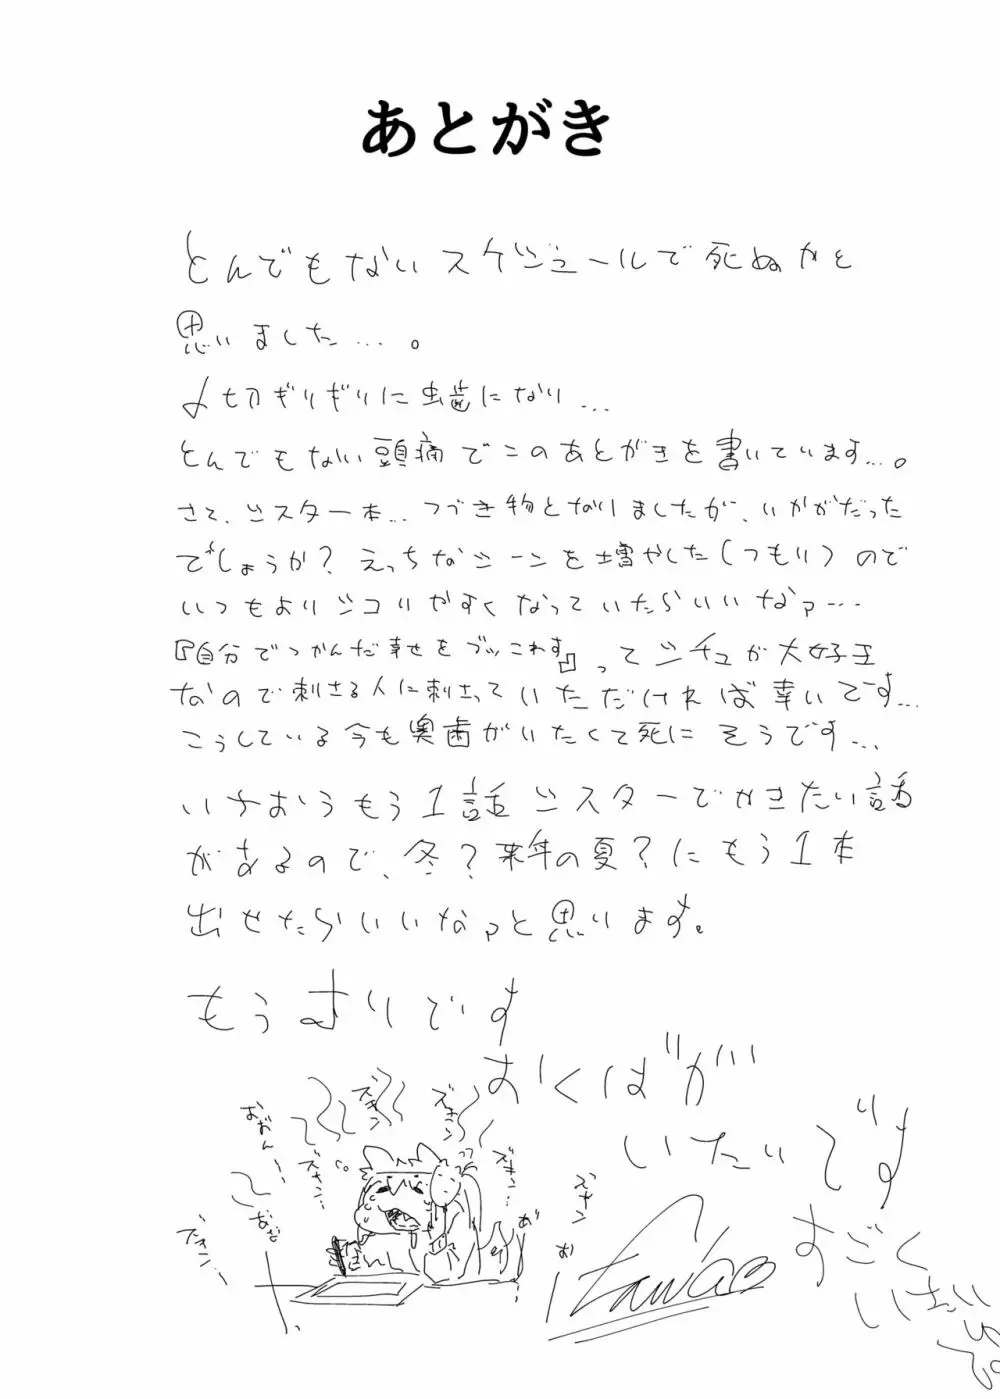 あとがき
とんでもないスケジュールで死ぬかと
思いました…。
〆切ギリギリに虫歯になり…
とんでもない頭痛でこのあとがきを書いています…。
さて、シスター本…つづき物となりましたが、いかがだった
でしょうか？えっちなシーンを増やした(つもり)ので
いつもよりシコりやすくなっていたらいいなァ…
『自分でつかんだ幸せをブッこわす』ってシチュが大好王
なので刺さる人に刺さっていただければ幸いです…
こうしている今も奥歯がいたくて死にそうです…
いちおうもう1話シスターでかきたい話
があるので、冬？来年の夏？にもう1本
出せたらいいなァと思います。
もうムリです
おくばが
いたいです
すごく
いたい
ズキン
ズキン
ズキン…
ズキン…
おおん…
おお
ズキン…
ズキン
お
お